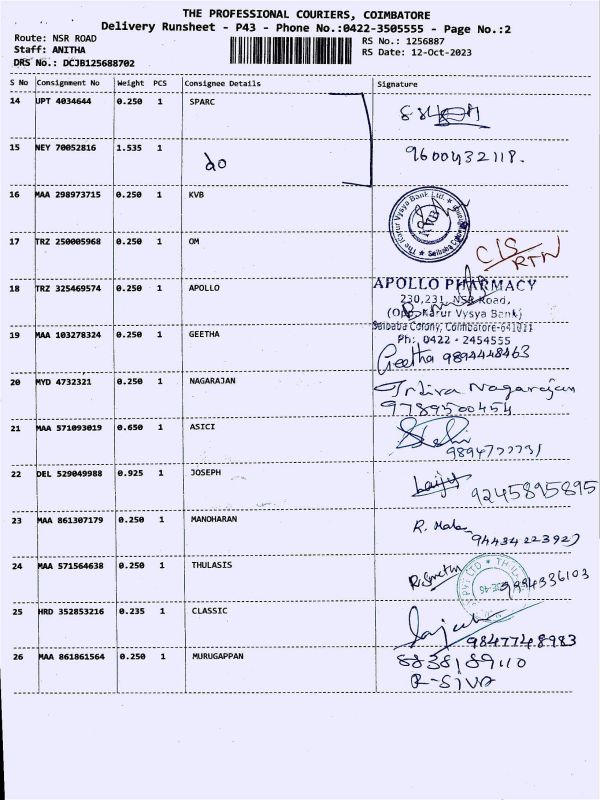 THE PROFESSIONAL COURIERS, COIMBATORE
Delivery Runsheet - P43 - Phone No.:0422-3505555 - Page No.:2
Route: NSR ROAD
Staff: ANITHA
DRS No.: DCJB125688702
RS No.: 1256887
RS Date: 12-Oct-2023
S No Consignment No Weight PCS Consignee Details Signature
14 UPT 4034644 0.250 1 SPARC
15 NEY 70052816 1.535 1 do 9600432118.
16 MAA 298973715 0.250 1 KVB
The Karur Vysya Bank Ltd. ★ Saibaba Colony ★
17 TRZ 250005968 0.250 1 OM C/S RTN
18 TRZ 325469574 0.250 1 APOLLO
APOLLO PHARMACY
230,231, NSR Road,
(Opp. Karur Vysya Bank)
Saibaba Colony, Coimbatore-641011
Ph: 0422 - 2454555
19 MAA 103278324 0.250 1 GEETHA Geetha 9894448463
20 MYD 4732321 0.250 1 NAGARAJAN Nagarajan
9789500454
21 MAA 571093019 0.650 1 ASICI
9894777731
22 DEL 529049988 0.925 1 JOSEPH 9245895895
23 MAA 861307179 0.250 1 MANOHARAN R. 9443422392
24 MAA 571564638 0.250 1 THULASIS 9994336103
25 HRD 352853216 0.235 1 CLASSIC
9847748983
26 MAA 861861564 0.250 1 MURUGAPPAN 8838189110
R-SIVA